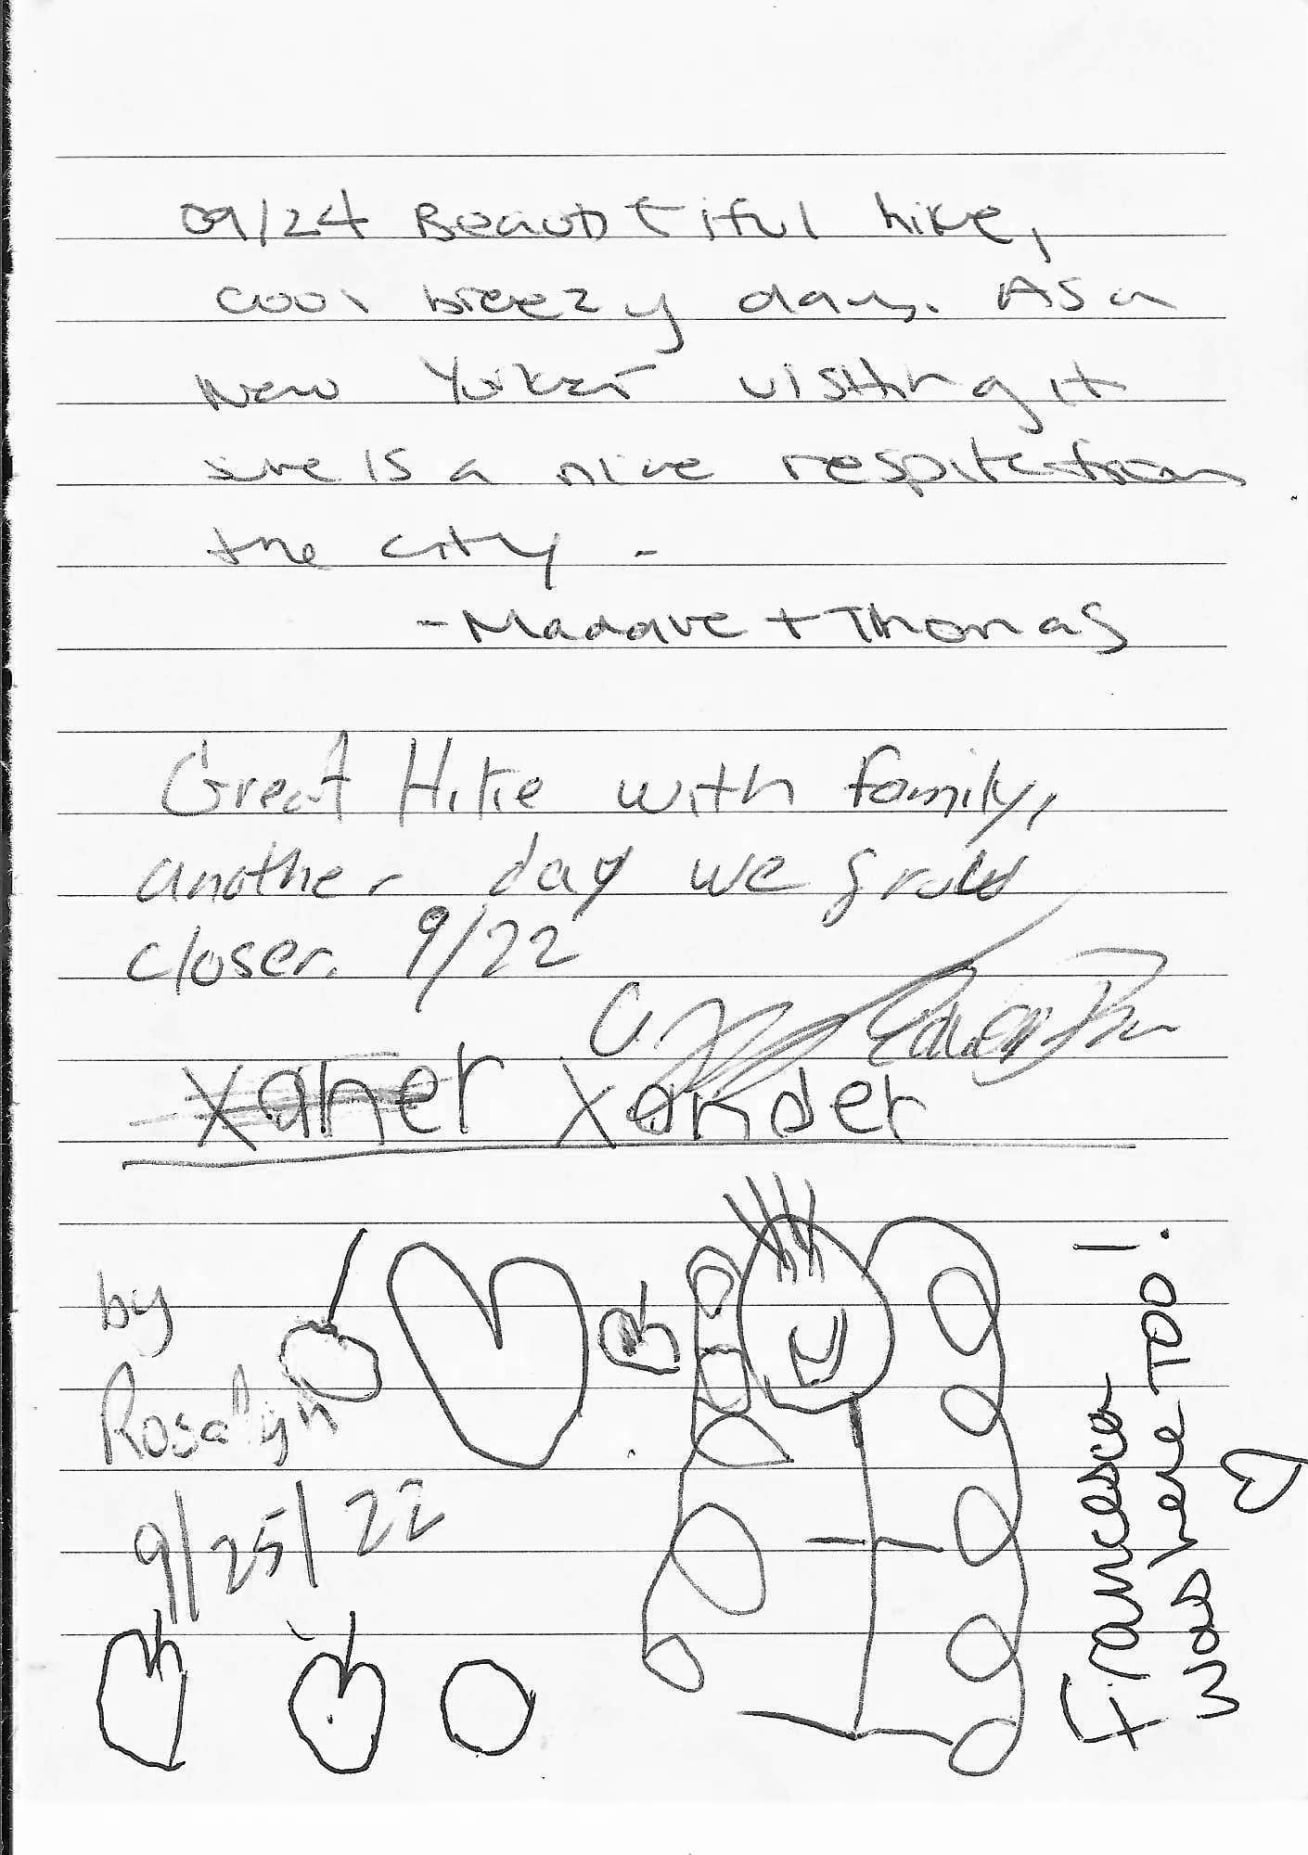 09/24 Beautiful hike,
cool breezy day. As a
New Yorker visiting it
sure is a nice respite from
the city -
- + Thomas
Great Hike with family,
another day we grow
closer. 9/22
Xaner Xander
by
Rosalyn
9/25/22
Francesca
was here TOO!